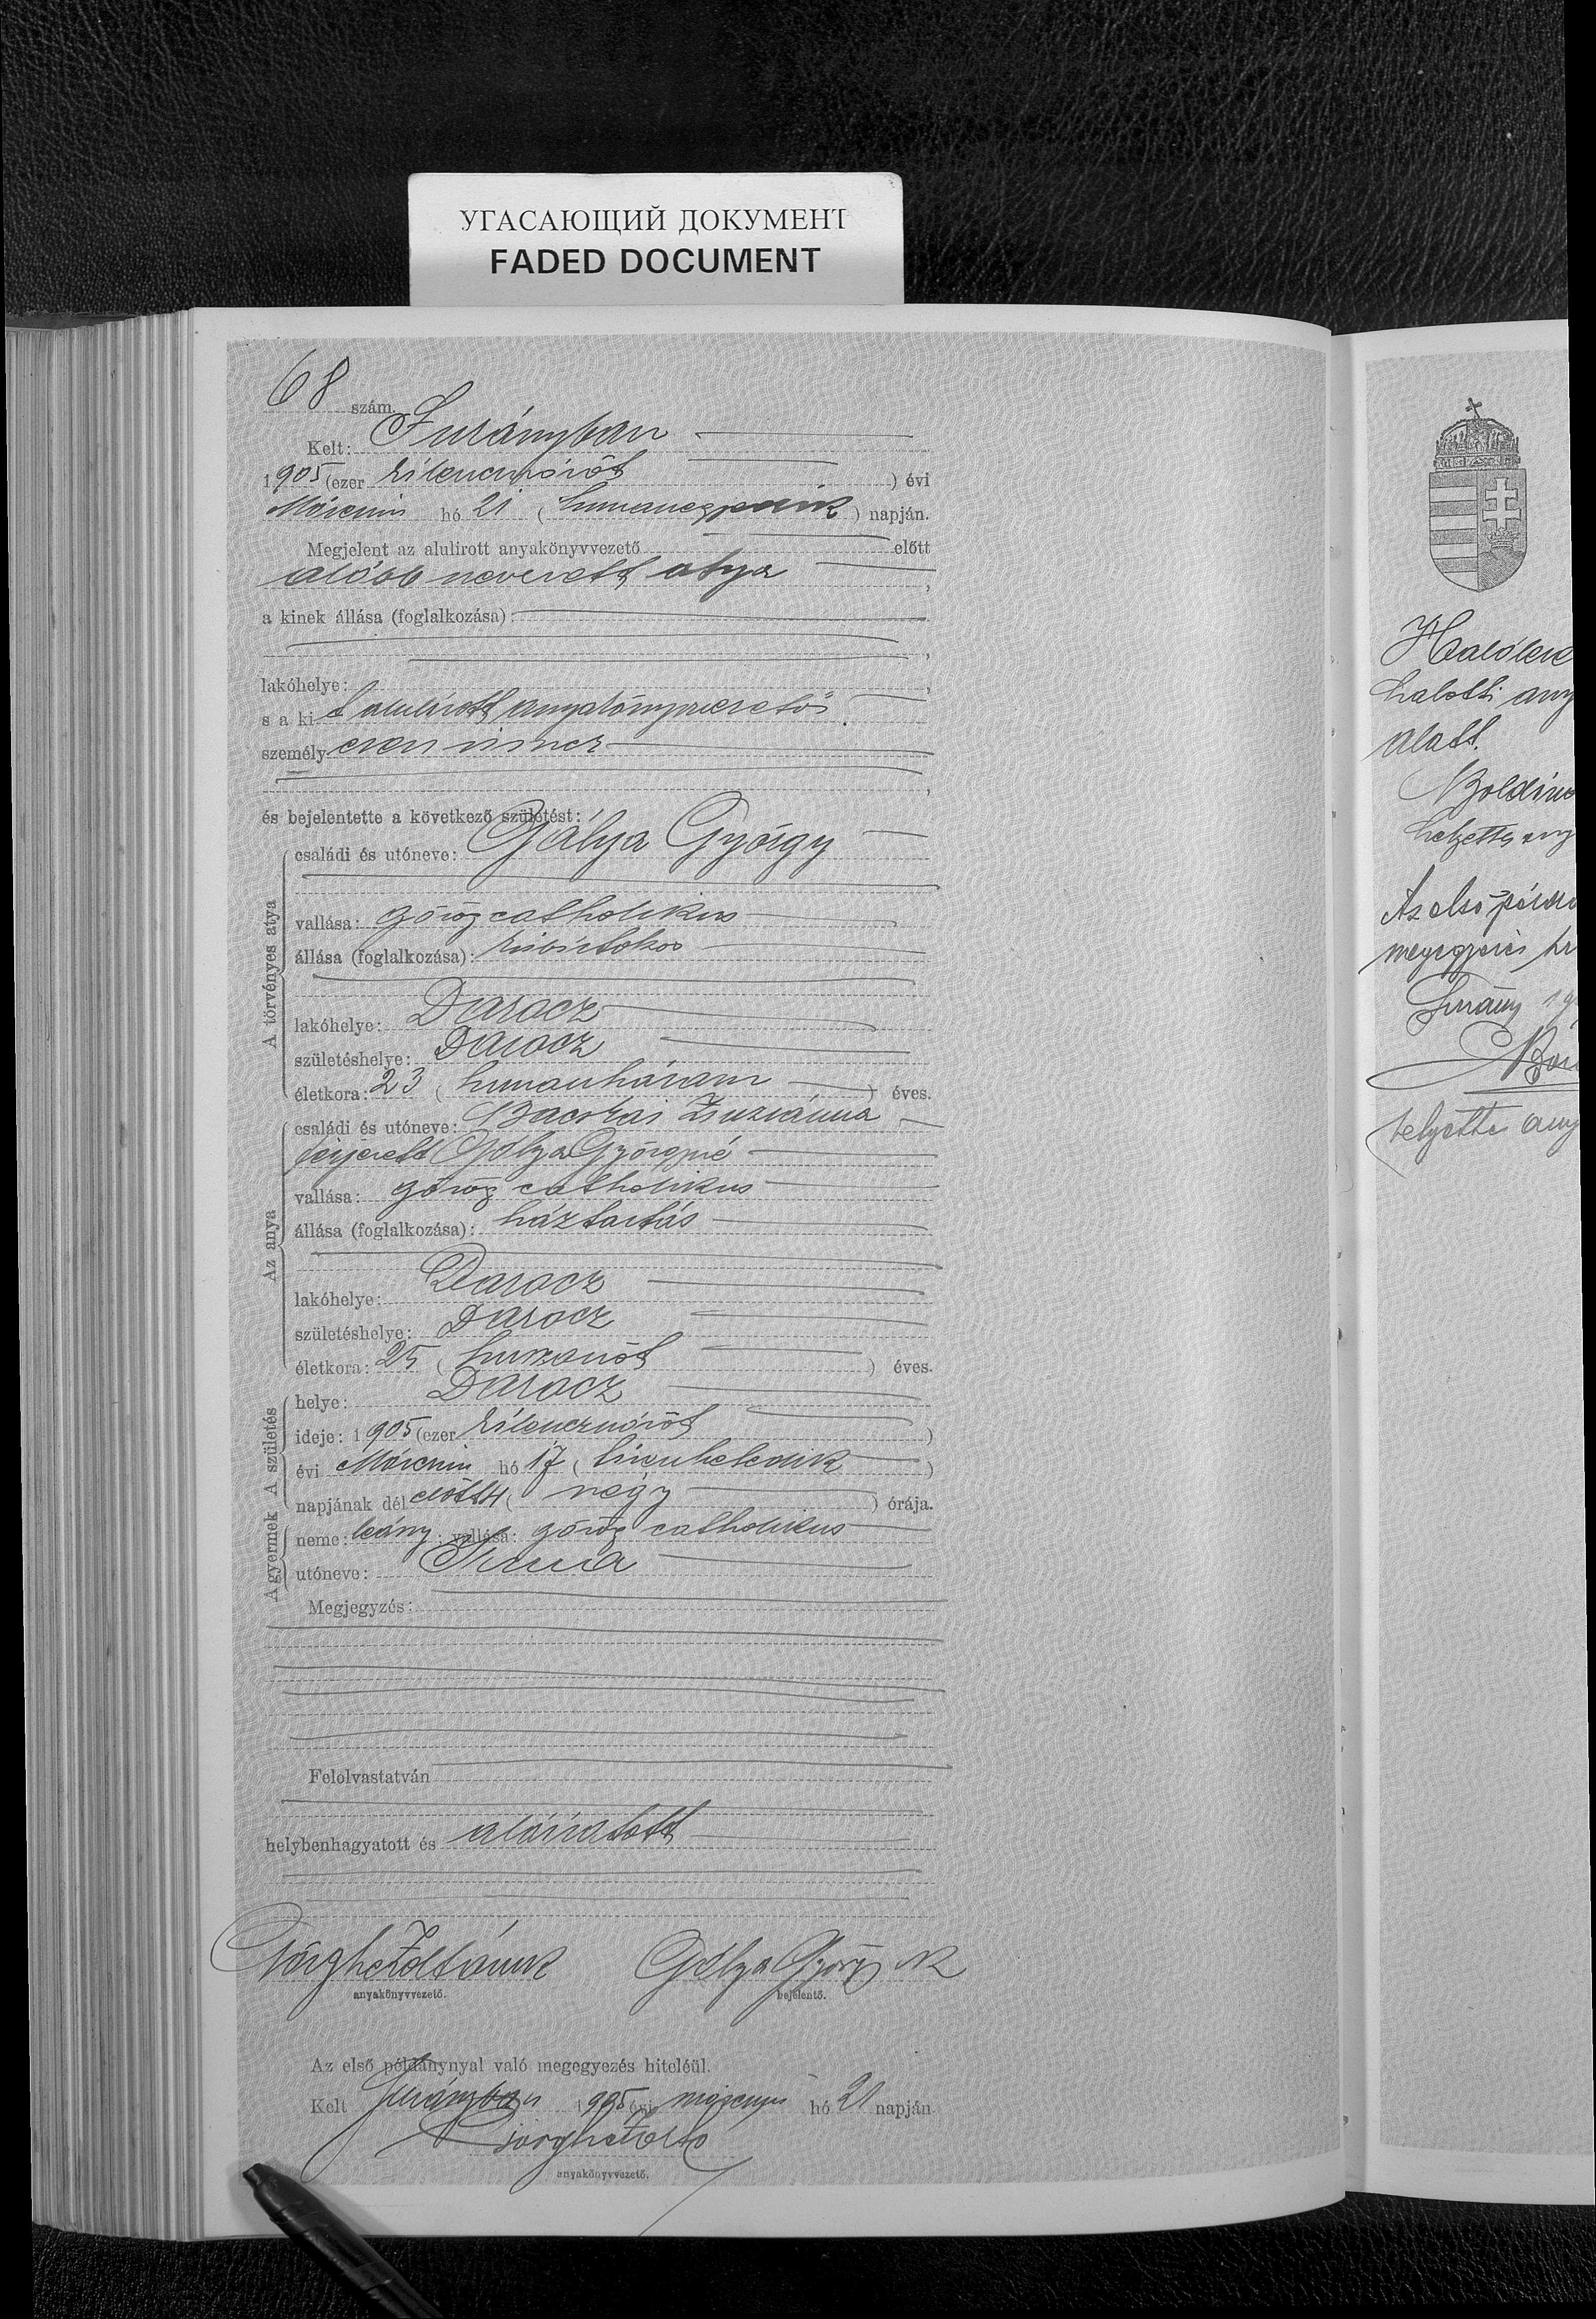 УГАСАЮЩИЙ ДОКУМЕНТ
FADED DOCUMENT
68 szám.
Kelt: Surányban
1905 (ezer kilenczszázöt ) évi
Március hó 21 ( huszonegyedik ) napján.
Megjelent az alulirott anyakönyvvezető előtt
alább nevezett atya ,
a kinek állása (foglalkozása):
,
lakóhelye: ,
s a ki t alulírott anyakönyvvezető
személy esen ismer
,
és bejelentette a következő születést:
A törvényes atya
családi és utóneve: Gálya György
vallása: görög catholikus
állása (foglalkozása): kisbirtokos
lakóhelye: Darocz
születéshelye: Darocz
életkora: 23 ( huszonhárom ) éves.
Az anya
családi és utóneve: Zsuzsánna
férjezett Gálya Györgyné
vallása: görög catholikus
állása (foglalkozása): háztartás
lakóhelye: Darocz
születéshelye: Darocz
életkora: 25 ( huszonöt ) éves.
A születés
helye: Darocz
ideje: 1905 (ezer kilenczszázöt )
évi Március hó 17 ( tizenhetedik )
napjának dél előtt 4 ( négy ) órája.
A gyermek
neme: leány ; vallása: görög catholikus
utóneve: Irma
Megjegyzés:
Felolvastatván
helybenhagyatott és aláíratott
Zoltán sk
anyakönyvvezető.
Gálya György sk
bejelentő.
Az első példánynyal való megegyezés hiteléül.
Kelt Surányban 1905 évi március hó 21 napján
anyakönyvvezető.
halotti any
alatt.
helyettes any
Az első példá
megegyezés hi
Surány 19
helyettes any